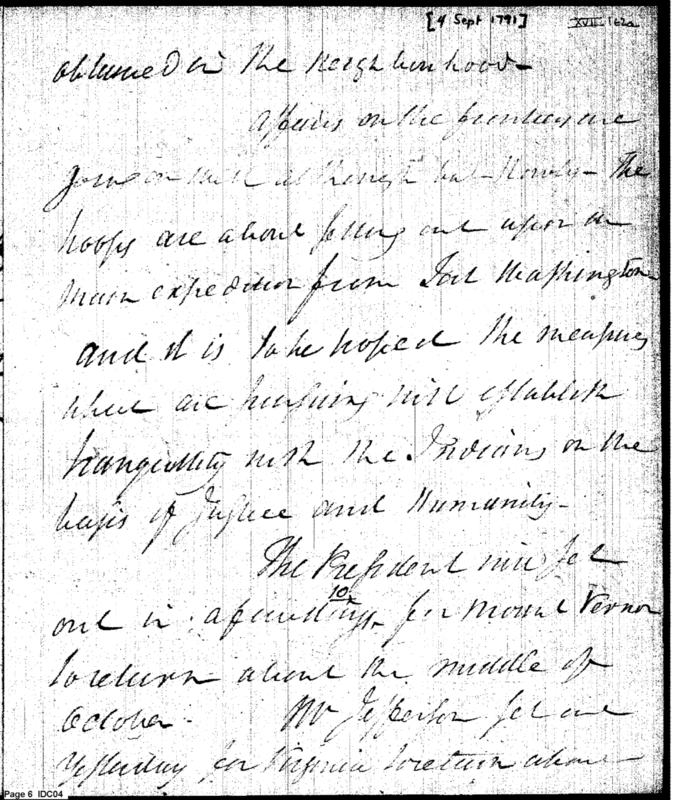 [4 Sept 1791] XVII 162a
obtained in the Neighbourhood—
Affairs on the frontiers are
going on well although but slowly— The
troops are about setting out upon the
main expedition from Fort Washington
and it is to be hoped the measures
which are pursuing will establish
tranquility with the Indians on the
basis of Justice and Humanity—
The President will set
out in a few days for Mount Vernon
10
to return about the middle of
October. Mr Jefferson set out
yesterday for Virginia to return about—
Page 6 IDC04